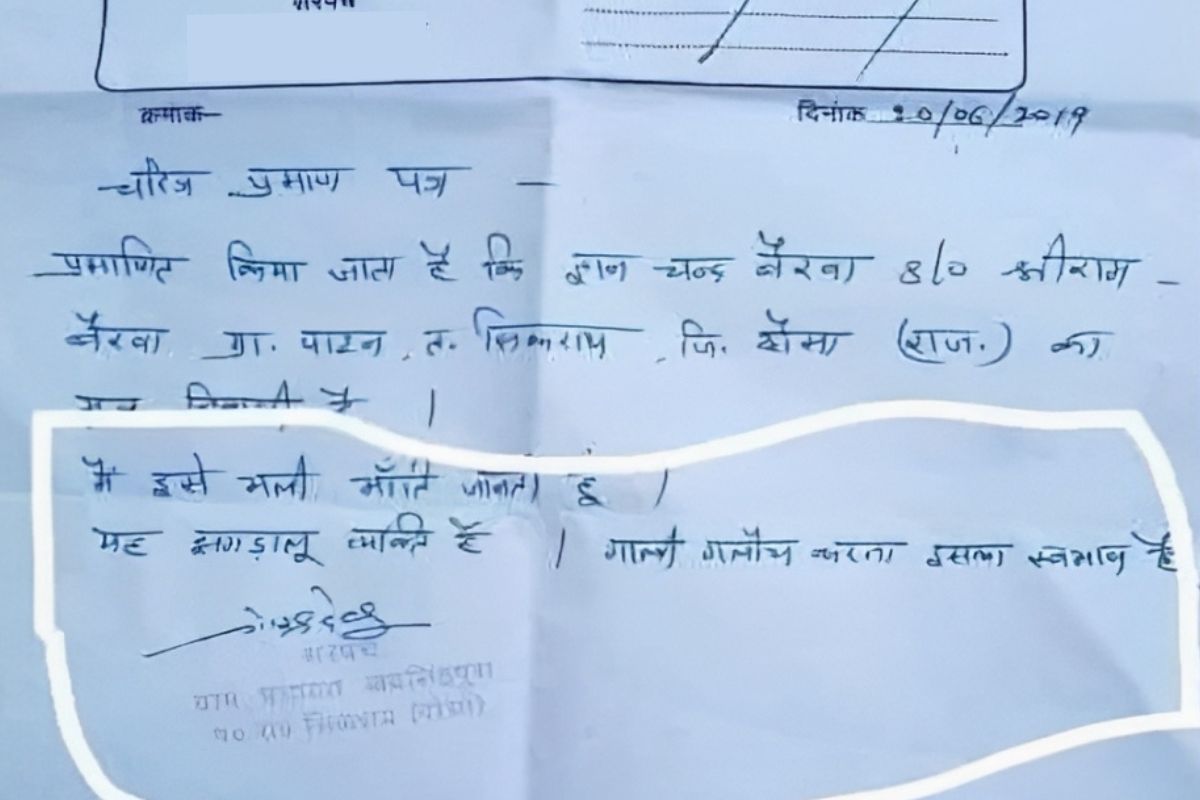 सरपंच
क्रमांक
दिनांक 20/06/2019
चरित्र प्रमाण पत्र —
प्रमाणित किया जाता है कि ज्ञान चन्द बैरवा S/o श्रीराम -
बैरवा ग्रा. पाटन त. सिकराय जि. दौसा (राज.) का
मूल निवासी है ।
मैं इसे भली भाँति जानता हूं ।
यह झगड़ालू व्यक्ति है । गाली गलौच करना इसका स्वभाव है
सरपंच
ग्राम पंचायत
पं० स० सिकराय (दौसा)